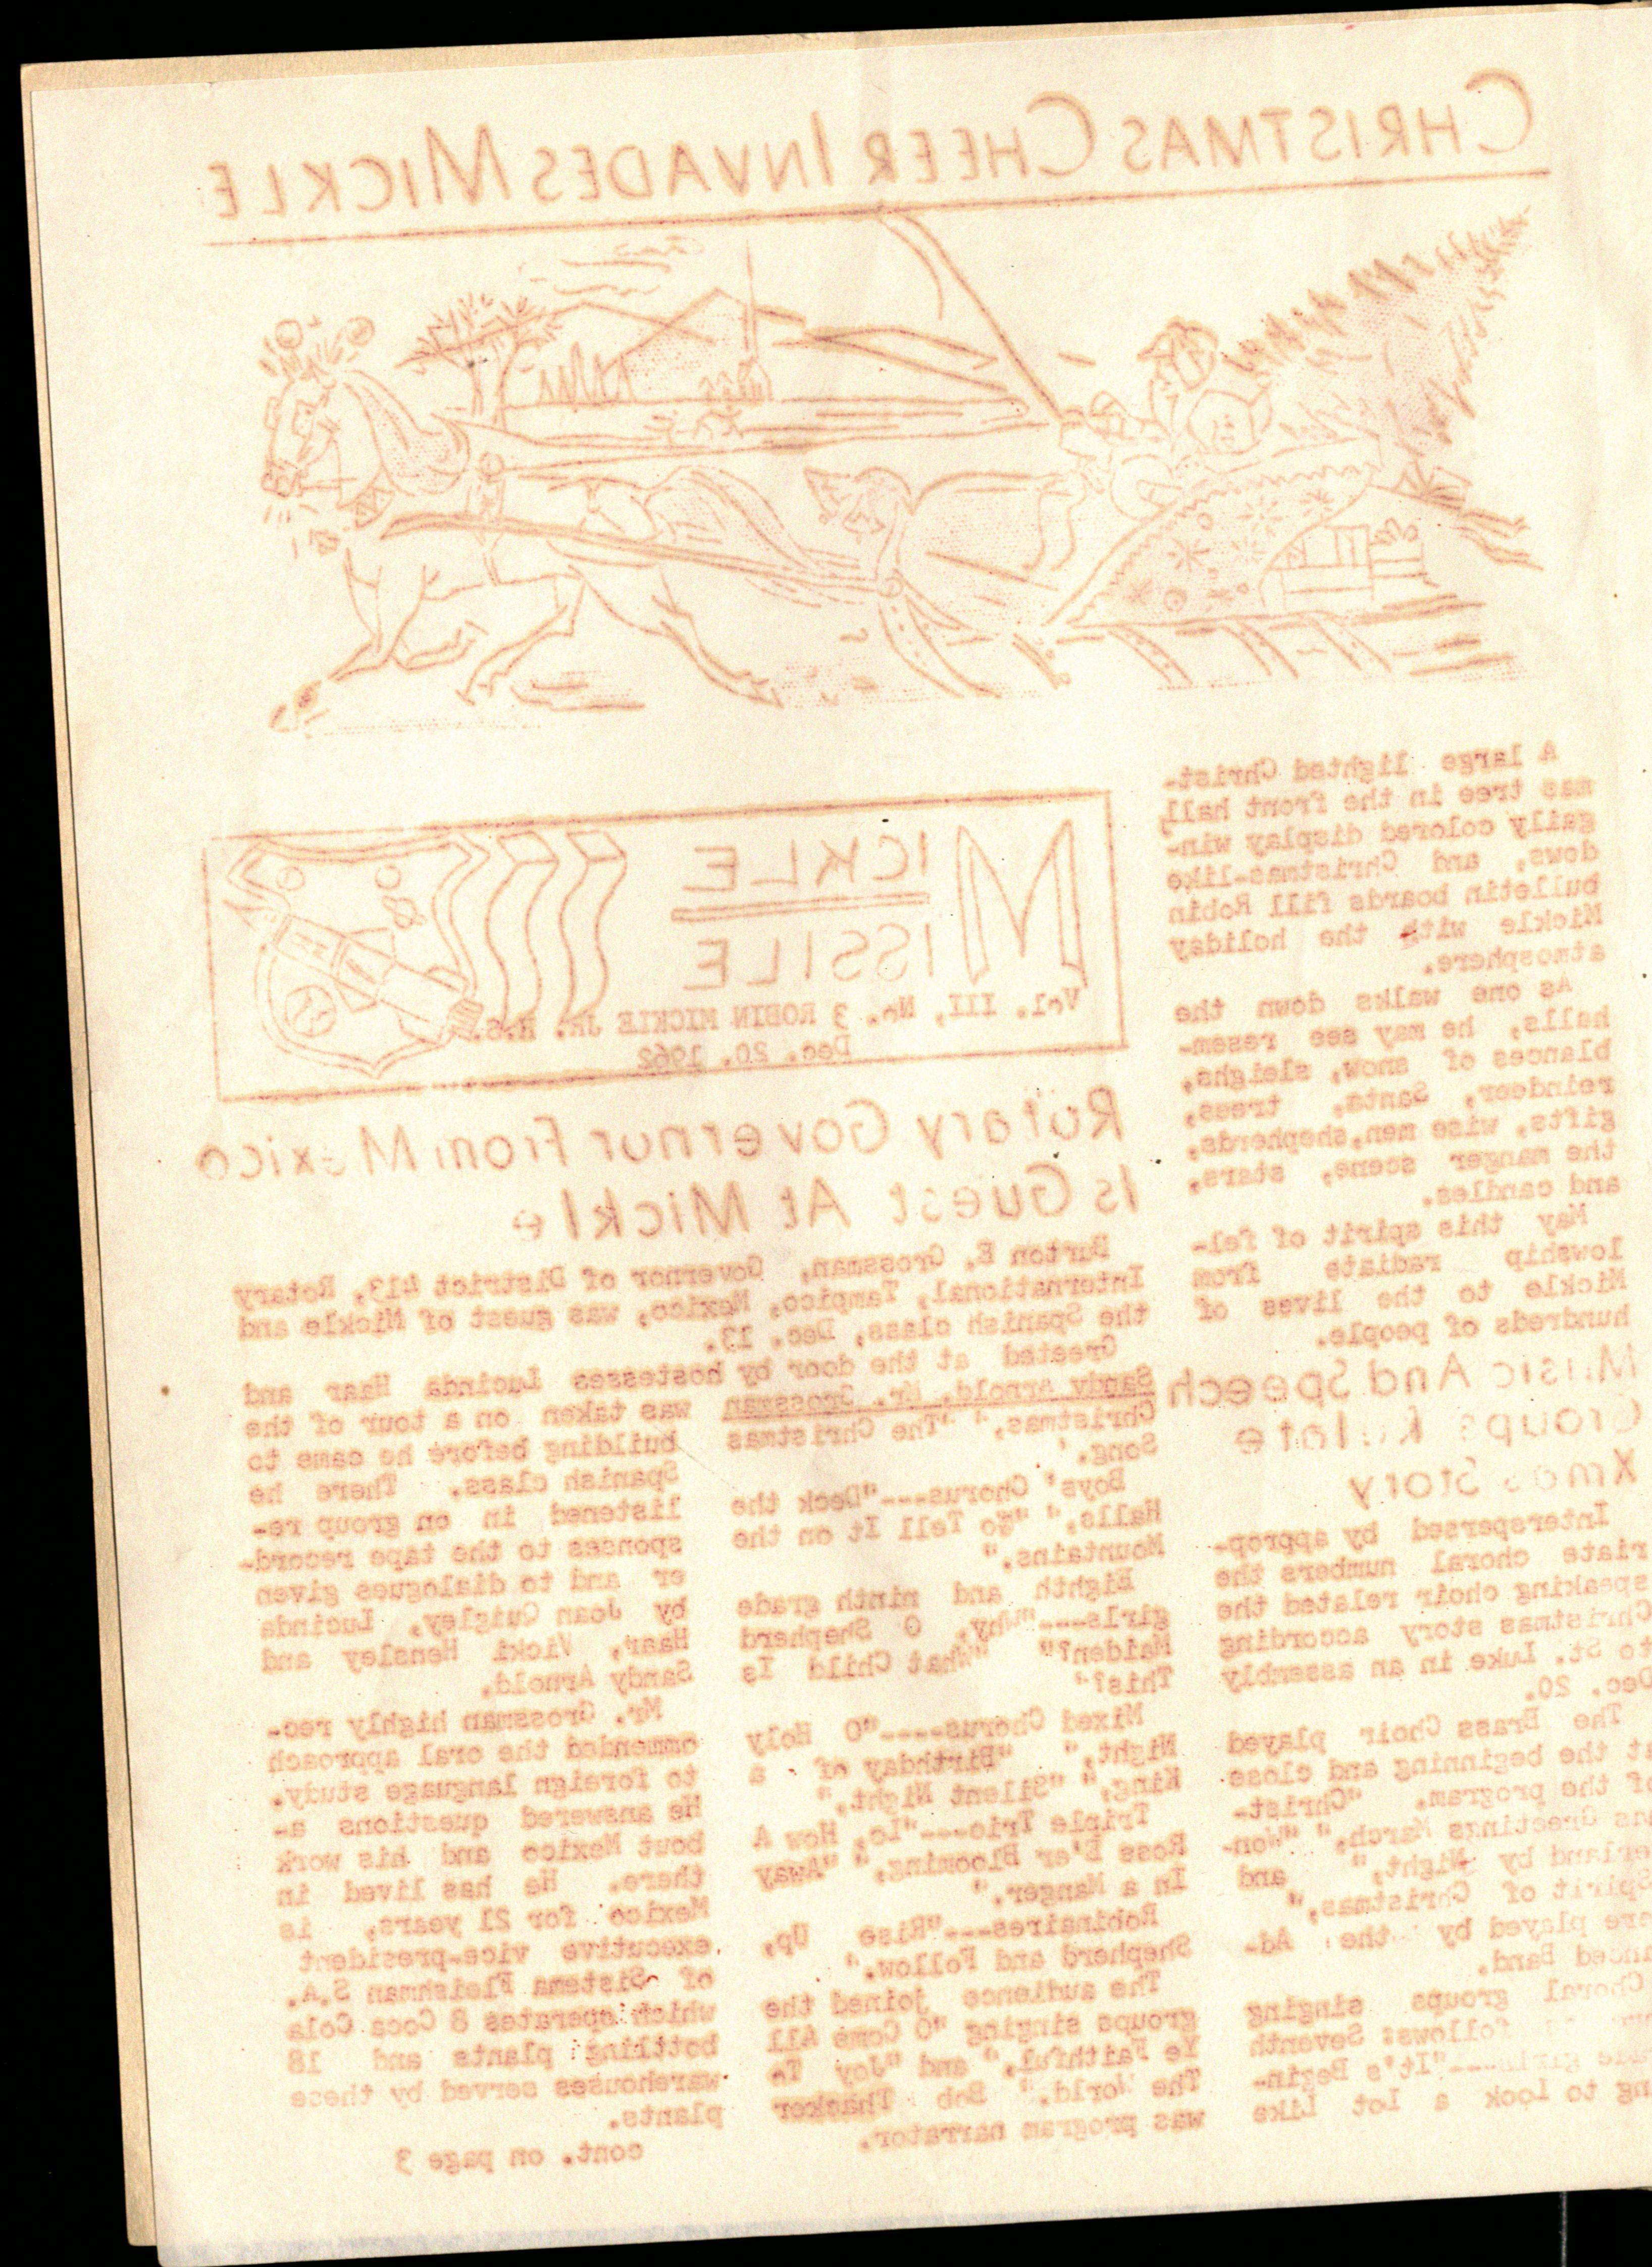 CHRISTMAS CHEER INVADES MICKLE
A large lighted Christ-
mas tree in the front hall,
gaily colored display win-
dows, and Christmas-like
bulletin boards fill Robin
Mickle with the holiday
atmosphere.
As one walks down the
halls, he may see resem-
blances of snow, sleighs,
reindeer, Santa, trees,
gifts, wise men, shepherds,
the manger scene, stars,
and candles.
May this spirit of fel-
lowship radiate from
Mickle to the lives of
hundreds of people.
MICKLE
MISSILE
Vol. III, No. 3 ROBIN MICKLE JR. H.S.
Dec. 20, 1962
Rotary Governor From Mexico
Is Guest At Mickle
Burton E. Grossman, Governor of District 413, Rotary
International, Tampico, Mexico, was guest of Mickle and
the Spanish class, Dec. 13.
Greeted at the door by hostesses Lucinda Haar and
Sandy Arnold, Mr. Grossman
was taken on a tour of the
building before he came to
Spanish class. There he
listened in on group re-
sponses to the tape record-
er and to dialogues given
by Joan Quigley, Lucinda
Haar, Vicki Hensley and
Sandy Arnold.
Mr. Grossman highly rec-
ommended the oral approach
to foreign language study.
He answered questions a-
bout Mexico and his work
there. He has lived in
Mexico for 21 years, is
executive vice-president
of Sistema Fleishman S.A.
which operates 8 Coca Cola
bottling plants and 18
warehouses served by these
plants.
cont. on page 3
Music And Speech
Groups Relate
Xmas Story
Interspersed by approp-
riate choral numbers the
speaking choir related the
Christmas story according
to St. Luke in an assembly
Dec. 20.
The Brass Choir played
at the beginning and close
of the program. "Christ-
mas Greetings March," "Won-
erland by Night," and
Spirit of Christmas,"
were played by the Ad-
anced Band.
Choral groups singing
follows: Seventh
girls---"It's Begin-
ng to Look a Lot Like
Christmas," "The Christmas
Song."
Boys' Chorus---"Deck the
Halls," "Go Tell It on the
Mountains."
Eighth and ninth grade
girls---"Why, O Shepherd
Maiden?" "What Child Is
This?"
Mixed Chorus----"O Holy
Night," "Birthday of a
King," "Silent Night,"
Triple Trio---"Lo, How A
Rose E'er Blooming," "Away
In a Manger."
Robinaires---"Rise Up,
Shepherd and Follow."
The audience joined the
groups singing "O Come All
Ye Faithful," and "Joy To
The World." Bob Thacker
was program narrator.